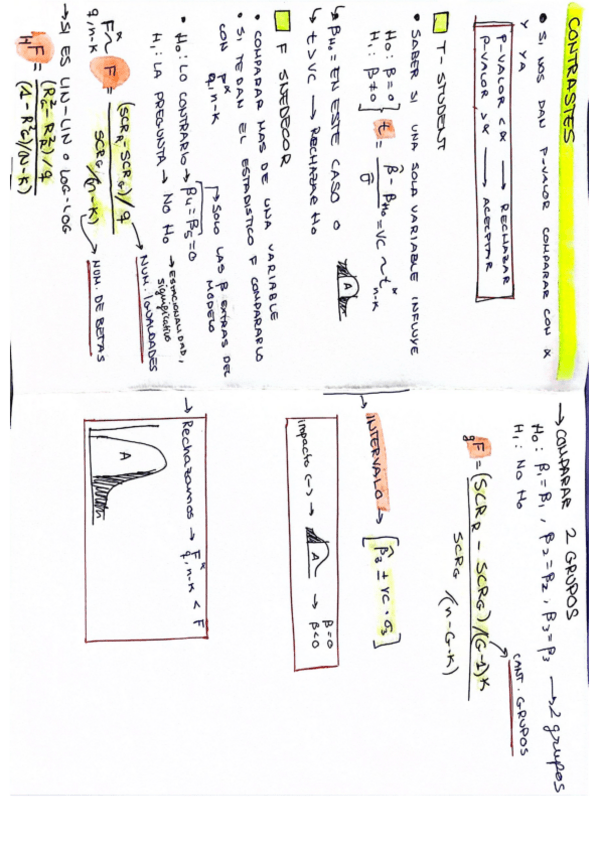 CONTRASTES
• SI NOS DAN P-VALOR COMPARAR CON α
Y YA
P-VALOR < α → RECHAZAR
P-VALOR > α → ACEPTAR
T-STUDENT
• SABER SI UNA SOLA VARIABLE INFLUYE
H₀: β = 0
H₁: β ≠ 0
t = (β̂ - βH₀) / σ̂ = VC ~ t^α n-k
A
↳ βH₀ = EN ESTE CASO 0
↳ t > VC → RECHAZAR H₀
F SNEDECOR
• COMPARAR MAS DE UNA VARIABLE
• SI TE DAN EL ESTADISTICO F COMPARARLO
CON F^α q, n-k
→ SOLO LAS β EXTRAS DEL
MODELO
• H₀: LO CONTRARIO → β4 = β5 = 0
H₁: LA PREGUNTA → NO H₀ → ESTACIONALIDAD,
significativo
F^α q, n-k ~ F = (SCR_R - SCR_G)/q / SCR_G/(n-k)
NUM. IGUALDADES
NUM. DE BETAS
→ SI ES LIN-LIN O LOG-LOG
F = (R²_G - R²_R)/q / (1 - R²_G)/(N-K)
H₁
→ COMPARAR 2 GRUPOS
H₀: β₁ = β₁, β₂ = β₂, β₃ = β₃ → 2 grupos
H₁: NO H₀
CANT. GRUPOS
F_g = (SCR_R - SCR_G)/(G-1)K / SCR_G/(n-G·K)
→ INTERVALO → [β̂₃ ± VC · σ̂₃]
impacto (-) → A → β = 0
β < 0
→ Rechazamos → F^α q, n-k < F
A